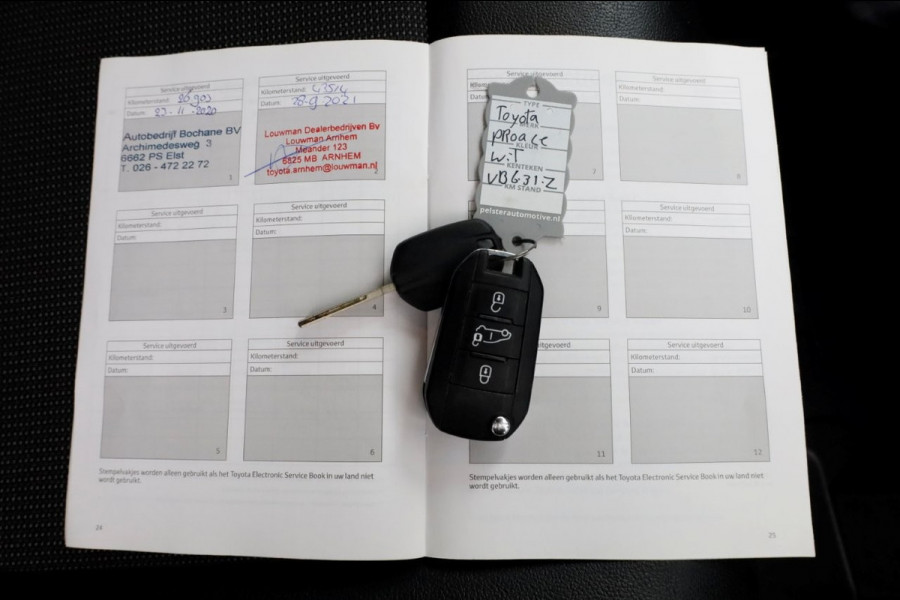 Service uitgevoerd
Kilometerstand:
Datum: 23-11-2020
Autobedrijf Bochane BV
Archimedesweg 3
6662 PS Elst
T. 026 - 472 22 72
1
Service uitgevoerd
Kilometerstand:
Datum: 28-9 2021
Louwman Dealerbedrijven Bv
Louwman Arnhem
Meander 123
6825 MB ARNHEM
toyota.arnhem@louwman.nl
Service uitgevoerd
Kilometerstand:
Datum:
3
Service uitgevoerd
Kilometerstand:
Datum:
4
Service uitgevoerd
Kilometerstand:
Datum:
5
Service uitgevoerd
Kilometerstand:
Datum:
6
Stempelvakjes worden alleen gebruikt als het Toyota Electronic Service Book in uw land niet
wordt gebruikt.
24
TYPE
Toyota
MERK
PROACE
KLEUR
WIT
KENTEKEN
VBG31-Z
KM STAND
pelsterautomotive.nl
7
Service uitgevoerd
Kilometerstand:
Datum:
8
9
Service uitgevoerd
Kilometerstand:
Datum:
10
uitgevoerd
11
Service uitgevoerd
Kilometerstand:
Datum:
12
Stempelvakjes worden alleen gebruikt als het Toyota Electronic Service Book in uw land niet
wordt gebruikt.
25